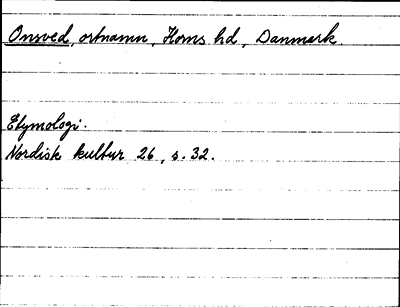 Onsved, ortnamn, Horns hd, Danmark.
Etymologi.
Nordisk kultur 26, s. 32.